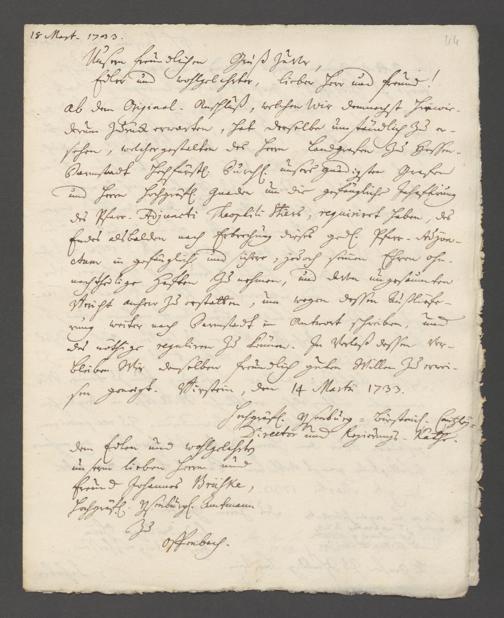 18 Mart. 1733.
Unsern freundlichen Gruß zuvor,
Edler und wohlgelehrter, lieber Herr und Freund!
Ab dem Original-Anschluß, welchen wir demnechst hinwie-
derum zurück erwarten, hat derselbe umständlich zu er-
sehen, welchergestalten des Herrn Landgrafen zu Hessen-
Darmstadt Hochfürstl. Durchl. unsers gnädigsten Grafen
und Herrn Hochgräfl. Gnaden um die gefängliche
des Pfarr-Adjuncti requirirt haben, des
Endes alsbalden nach Erbrechung dieses gedl. Pfarr-Adjun-
ctum in gefänglich und sichere, jedoch seinen Ehren ohn-
nachtheilige Hafften zu nehmen, und darvon ungesäumten
Bericht anhero zu erstatten, um wegen dessen Auslief-
rung weiter nach Darmstadt in Antwort schreiben, und
das nöthige reguliren zu können. In Verlaß dessen ver-
bleiben Wir demselben freundlich guten Willen zu erwei-
sen geneigt. Birstein, den 14 Martii 1733.
Hochgräfl. Ysenburg-Birstein. Cantzley-
Director und Regierungs-Räthe.
dem Edlen und wohlgelehrten
unserm lieben Herrn und
Freund Johannes
Hochgräfl. Ysenburgl. Amtmann
zu
Offenbach.